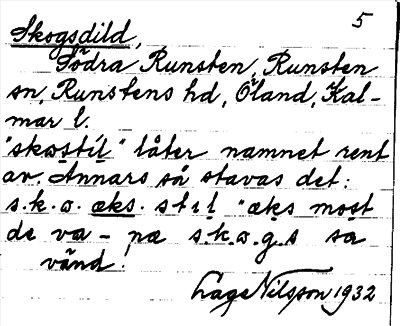 5
Skogsdild,
Södra Runsten, Runsten
sn, Runstens hd, Öland, Kal-
mar l.
"skɷstil" låter namnet rent
av. Annars så stavas det:
s.k.ɷ. æks. stil "æks most
de va - pæ s.k.ɷ.g.s sa
vänd!
Lage Nilsson 1932